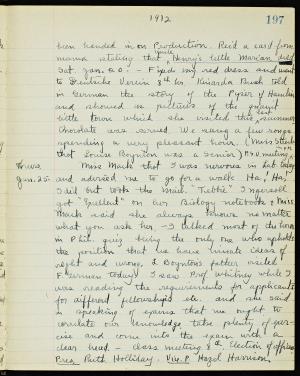 1912
197
been handed in on Production. Rec'd a card from
mama stating that Uncle Henry's little Marian died
Sat. Jan. 20. - Fixed my red dress and went
to Deutsche Verein 8th hr. Kinarda Bush told
in German the story of the Pyser of Hamelin
and showed us pictures of the quaint
little town which she visited this last summer
Chocolate was served. We sang a few songs
spending a very pleasant hour. (Miss
that Louise Boynton was a Senior)
Thurs. Miss Mack that I was nervous in lab. today
Jan. 25. and advised me to go for a walk Ha! Ha!
I did but took the mail. "Tebbie" Ingersoll
got "Excellent" on her Biology notebook & Miss
Mack said she always knows no matter
what you ask her. - I talked most of the hour
in Phil. quiz being the only one who upholds
the position that we have innate ideas of
right and wrong. L. Boynton's father visited
F. German today. I saw Prof Whitney while I
was reading the requirements for applicants
for different fellowships etc. and she said
in speaking of exams that we ought to
correlate our knowledge take plenty of exer-
cise and come into the exam with a
clear head. - Class meeting 8th Election of officers
Pres. Ruth Holliday. Vice. P. Hazel Harrison.